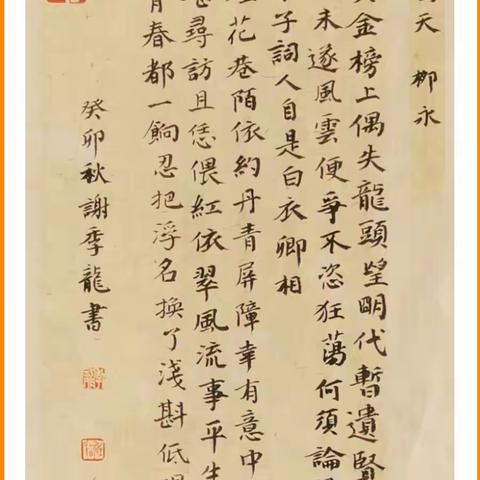 天 柳永
金榜上偶失龍頭望明代暫遺賢
未遂風雲便爭不恣狂蕩何須論
子詞人自是白衣卿相
花巷陌依約丹青屏障幸有意中
尋訪且恁偎紅依翠風流事平生
青春都一餉忍把浮名換了淺斟低
癸卯秋謝季龍書